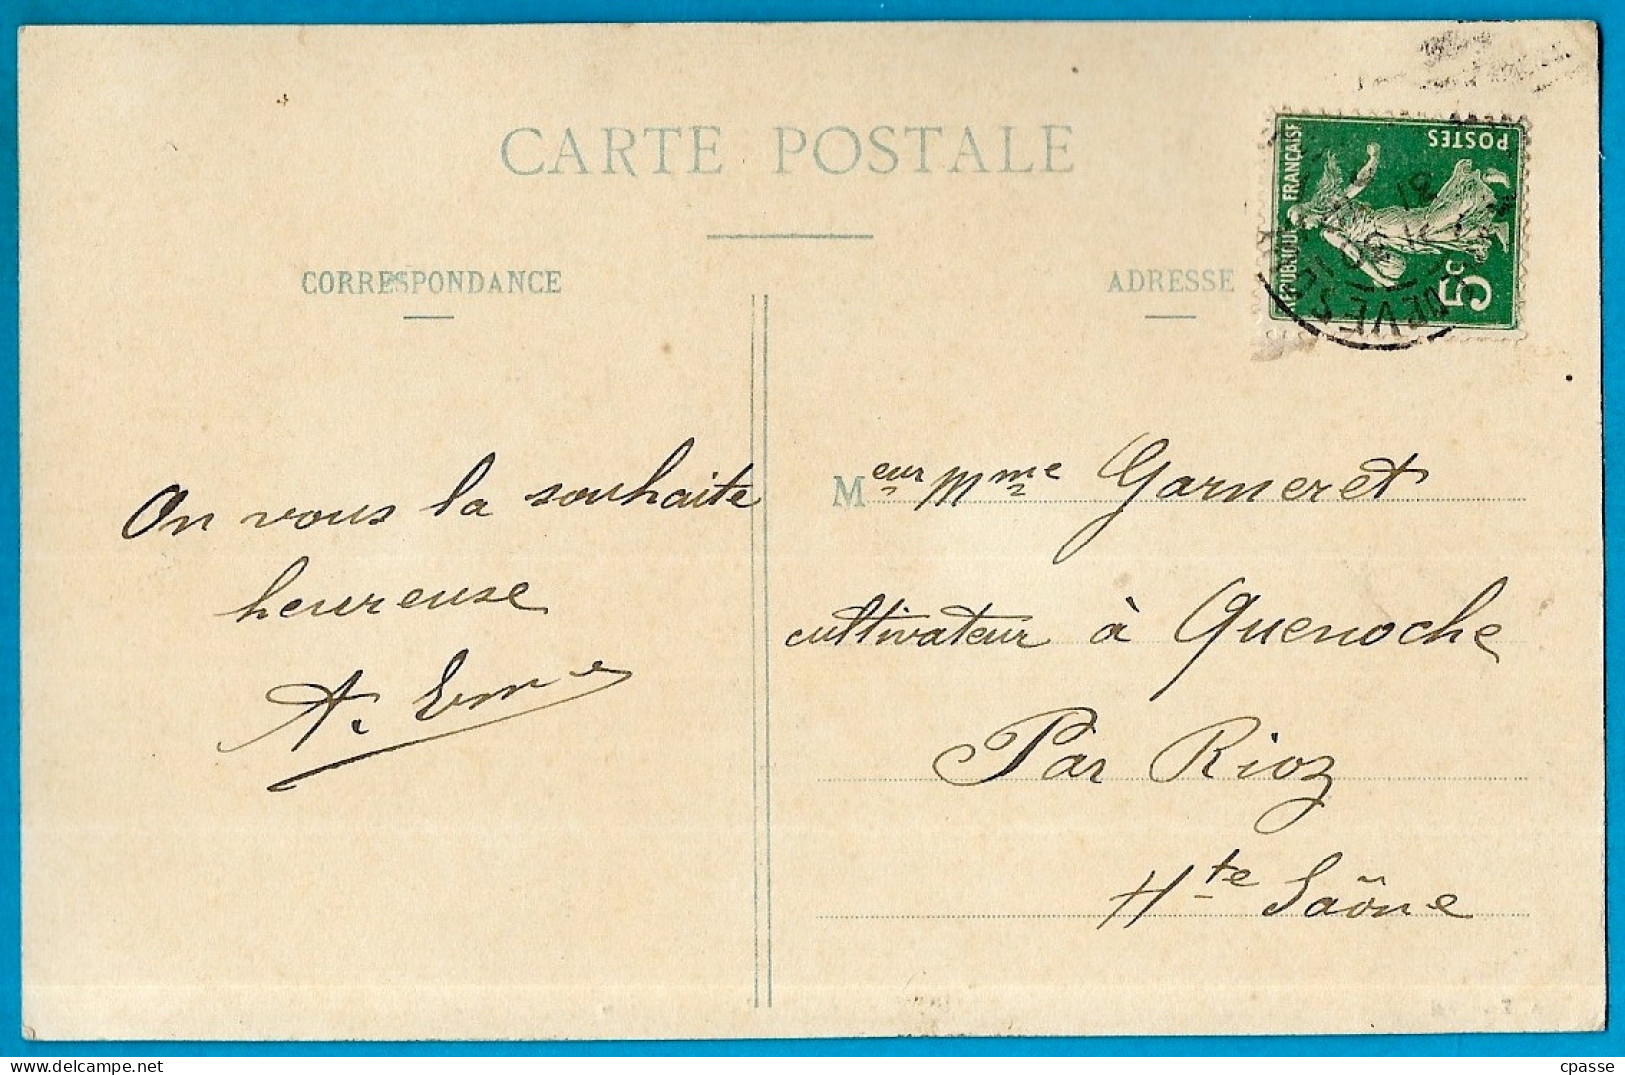 CARTE POSTALE
CORRESPONDANCE
ADRESSE
REPUBLIQUE FRANÇAISE
POSTES
5c
On vous la souhaite
heureuse
A.
Meur Mme Garneret
cultivateur à Quenoche
Par Rioz
Hte Saône
delcampe.net
cpasse